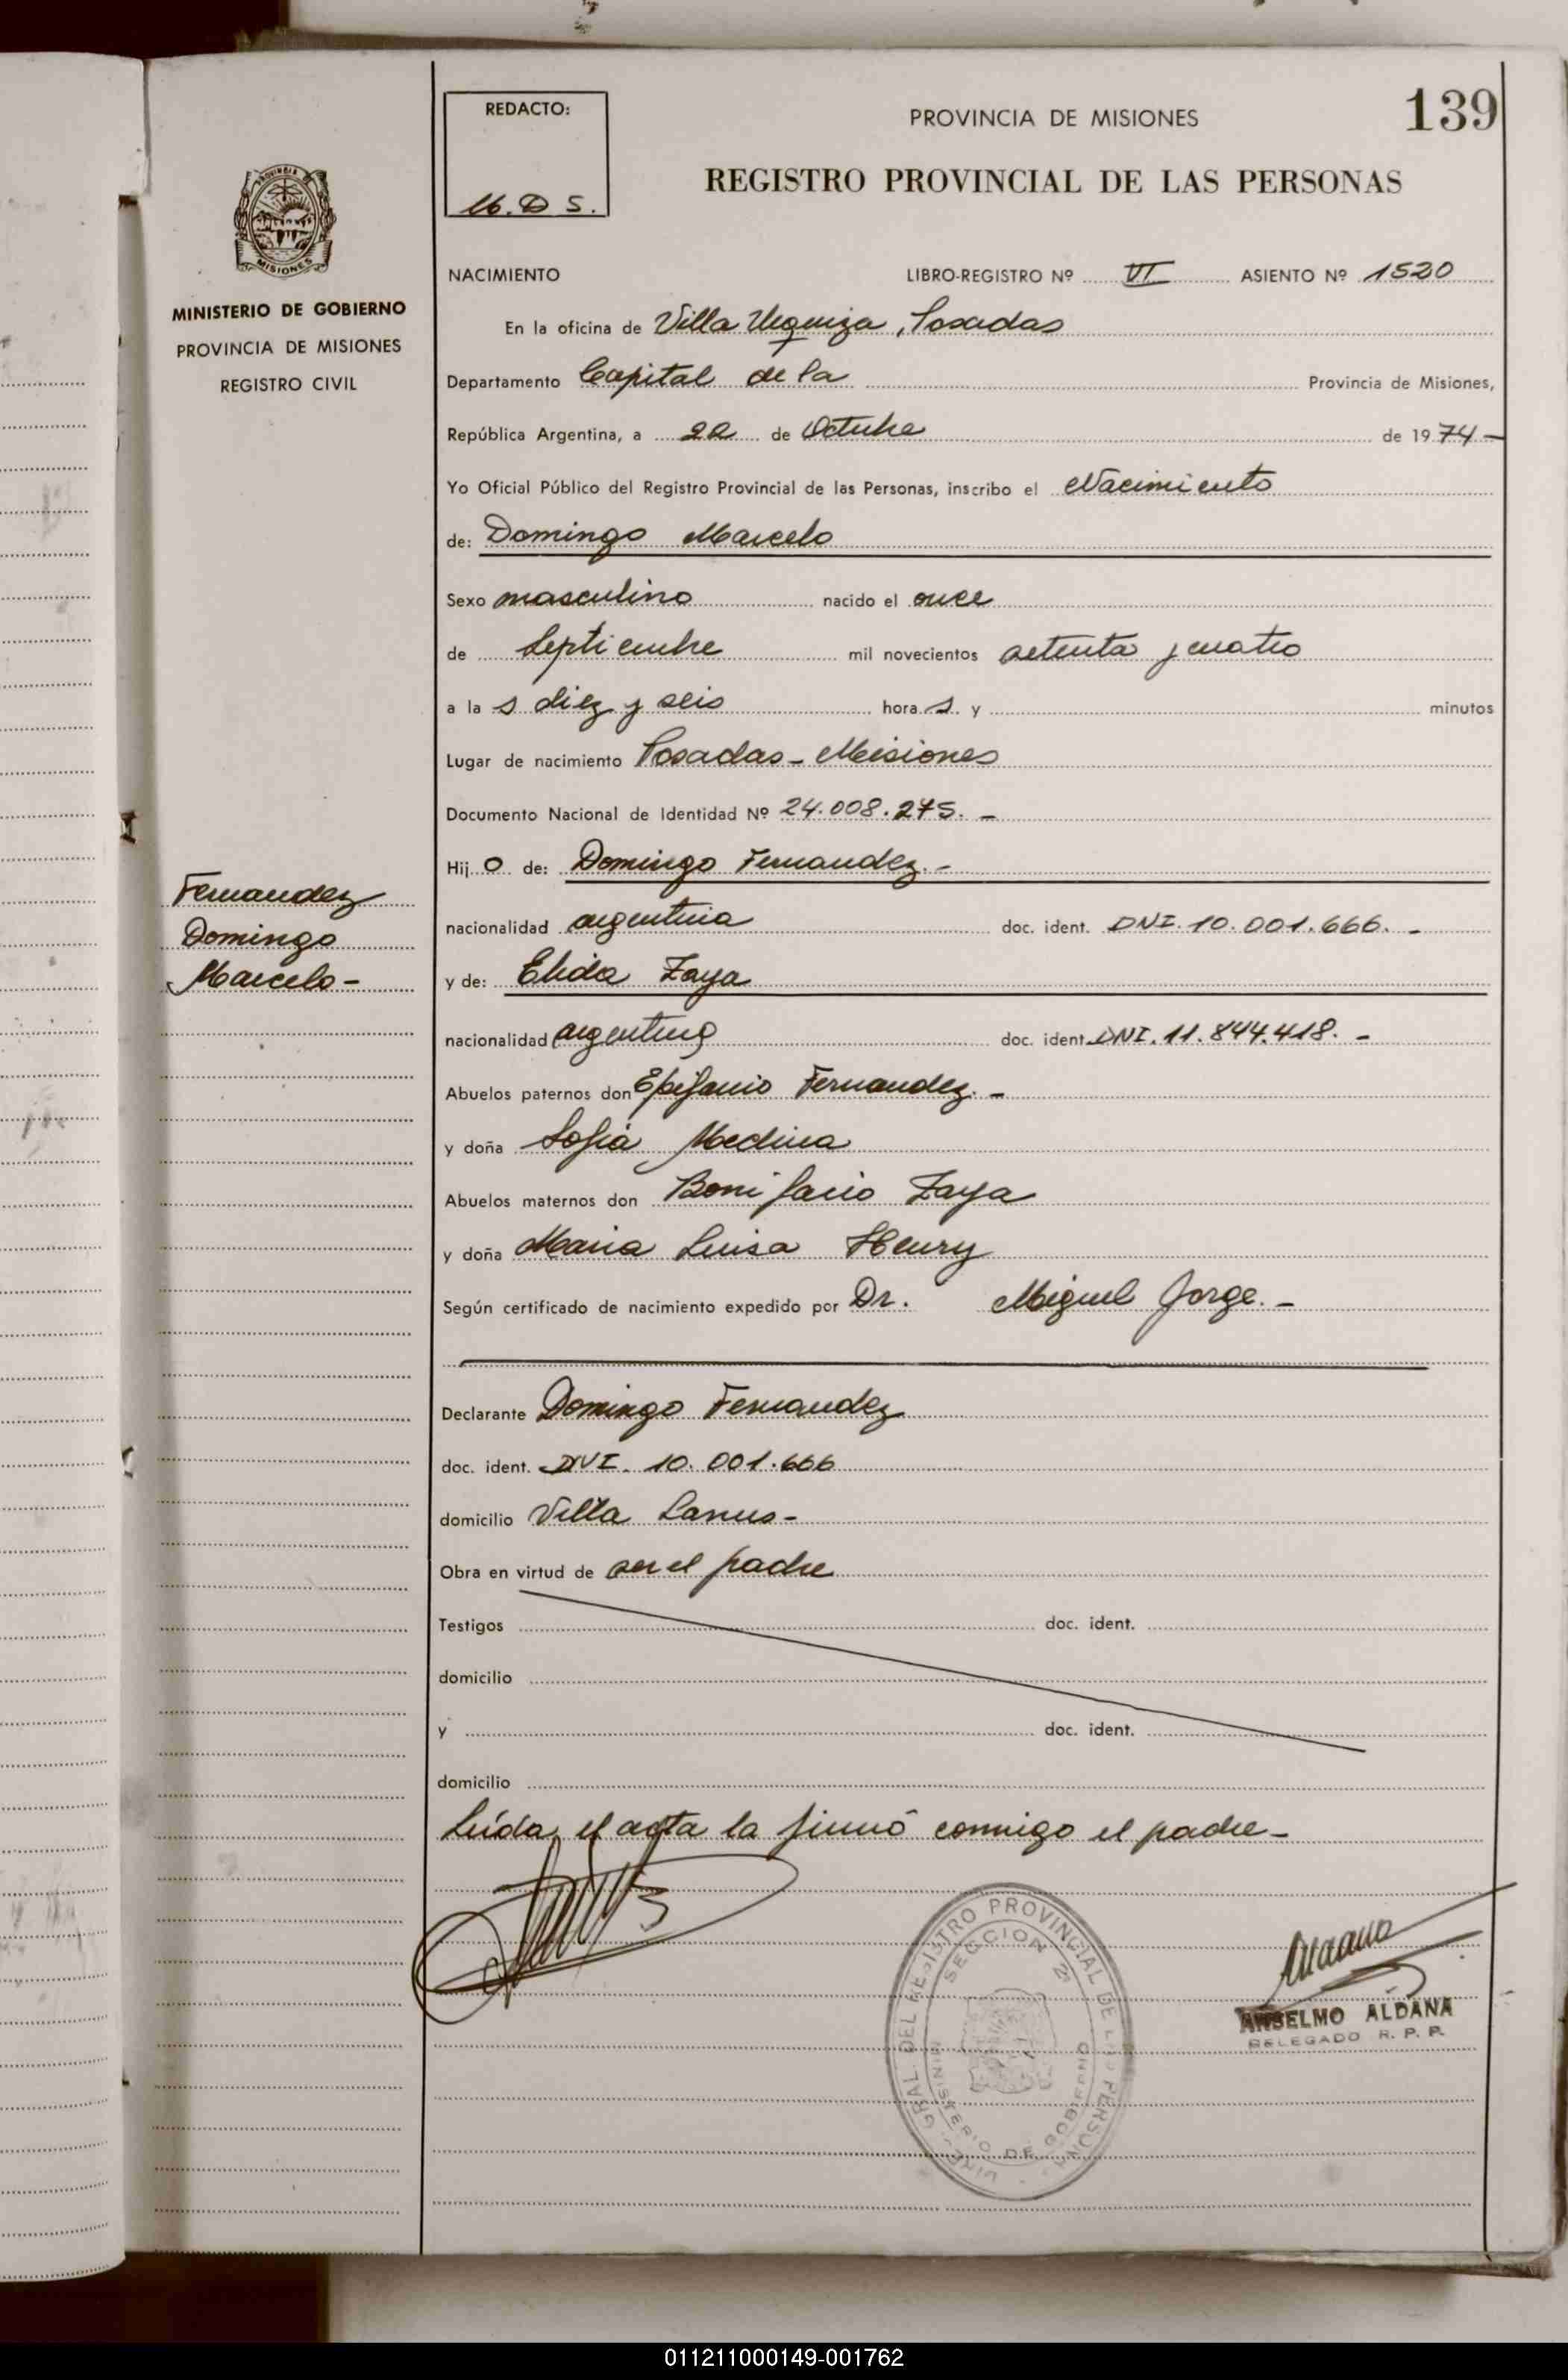 139
REDACTO:
M.D S.
PROVINCIA DE MISIONES
REGISTRO PROVINCIAL DE LAS PERSONAS
PROVINCIA DE
MISIONES
MINISTERIO DE GOBIERNO
PROVINCIA DE MISIONES
REGISTRO CIVIL
NACIMIENTO LIBRO-REGISTRO Nº VI ASIENTO Nº 1520
En la oficina de Villa Urquiza, Posadas
Departamento Capital de la Provincia de Misiones,
República Argentina, a 22 de Octubre de 1974-
Yo Oficial Público del Registro Provincial de las Personas, inscribo el Nacimiento
de: Domingo Marcelo
Sexo masculino nacido el once
de Septiembre mil novecientos setenta y cuatro
a la s diez y seis hora s y minutos
Lugar de nacimiento Posadas - Misiones
Documento Nacional de Identidad Nº 24.008.275. -
Hij o de: Domingo Fernandez. -
nacionalidad argentina doc. ident. DNI. 10.001.666. -
y de: Elida Zaya
nacionalidad argentina doc. ident. DNI. 11.844.418. -
Abuelos paternos don Epifanio Fernandez. -
y doña Sofia Medina
Abuelos maternos don Bonifacio Zaya
y doña Maria Luisa Henry
Según certificado de nacimiento expedido por Dr. Miguel Jorge. -
Fernandez
Domingo
Marcelo -
Declarante Domingo Fernandez
doc. ident. DNI. 10.001.666
domicilio Villa Lanus -
Obra en virtud de ser el padre
Testigos doc. ident.
domicilio
y doc. ident.
domicilio
Leída el acta la firmó conmigo el padre -
GRAL. DEL REGISTRO PROVINCIAL DE LAS PERSONAS
SECCION 2ª
MINISTERIO DE GOBIERNO
Aldana
ANSELMO ALDANA
DELEGADO R. P. P.
011211000149-001762